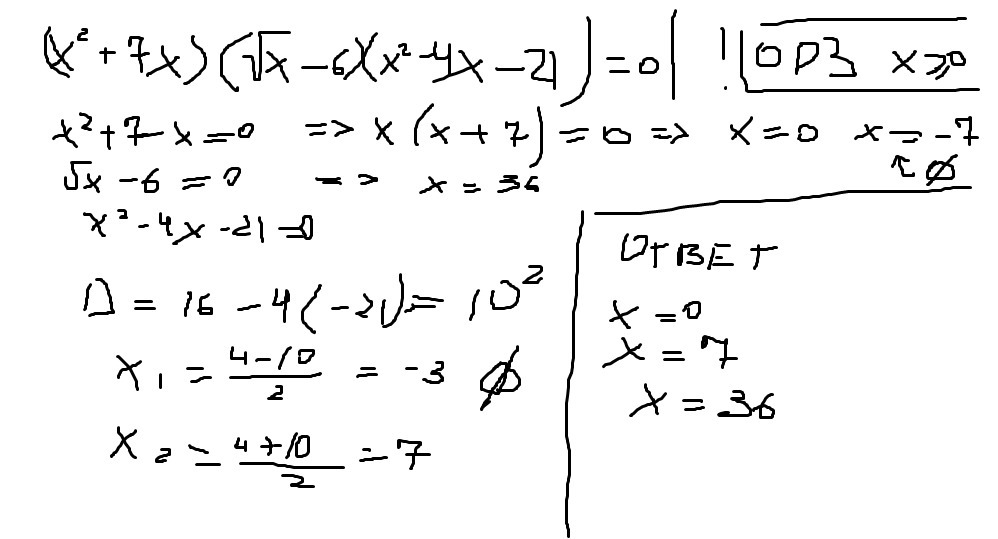 (x² + 7x) (√x - 6)(x² - 4x - 21) = 0 | ! ОРЗ x ≥ 0
x² + 7 - x = 0 => x (x + 7) = 0 => x = 0 x = -7
↑ ∅
√x - 6 = 0 => x = 36
x² - 4x - 21 = 0
D = 16 - 4(-21) = 10²
x₁ = (4-10)/2 = -3 ∅
x₂ = (4+10)/2 = 7
ОТВЕТ
x = 0
x = 7
x = 36